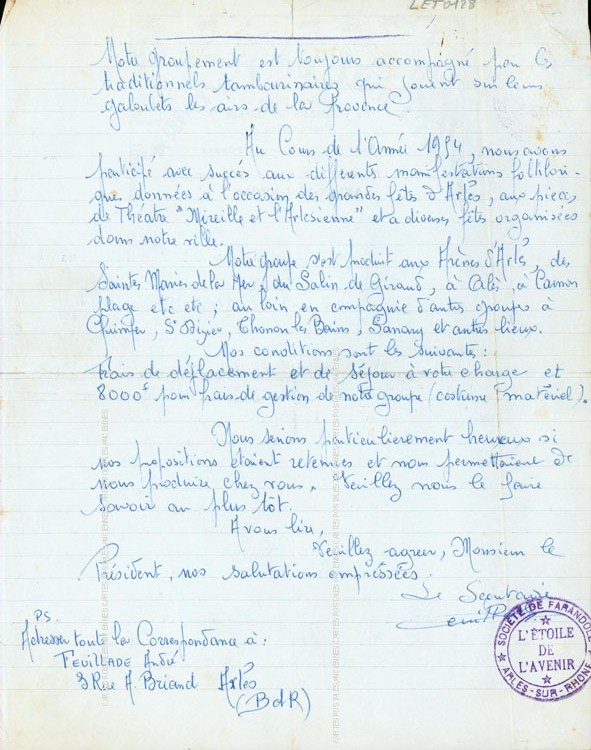 LET0128
Notre groupement est toujours accompagné par les
traditionnels tambourinaires qui jouent sur leurs
galoubets les airs de la Provence.
Au Cours de l'Année 1954, nous avons
participé avec succès aux différents manifestations folklori-
ques données à l'occasion des grandes fêtes d'Arles, aux pièces
de Théâtre "Mireille et l'Arlésienne" et a diverses fêtes organisées
dans notre ville.
Notre groupe s'est produit aux Arènes d'Arles, des
Saintes Maries de la Mer, du Salin de Giraud, à Alès, à Carnon
plage etc etc ; au loin, en compagnie d'autres groupes à
Quimper, St Dizier, Thonon les Bains, Sanary et autres lieux.
Nos conditions sont les suivantes :
frais de déplacement et de séjour à votre charge et
8000f pour frais de gestion de notre groupe (costume matériel).
Nous serions particulierement heureux si
nos propositions étaient retenues et nous permettaient de
nous produire chez vous. Veuillez nous le faire
savoir au plus tôt.
A vous lire,
Veuillez agréer, Monsieur le
Président, nos salutations empressées.
Le Secrétaire
PS.
Adresser toute la Correspondance à :
FEUILLADE André
3 Rue A. Briand Arles
(BdR)
SOCIÉTÉ DE FARANDOLE
L'ÉTOILE
DE
L'AVENIR
ARLES-SUR-RHÔNE